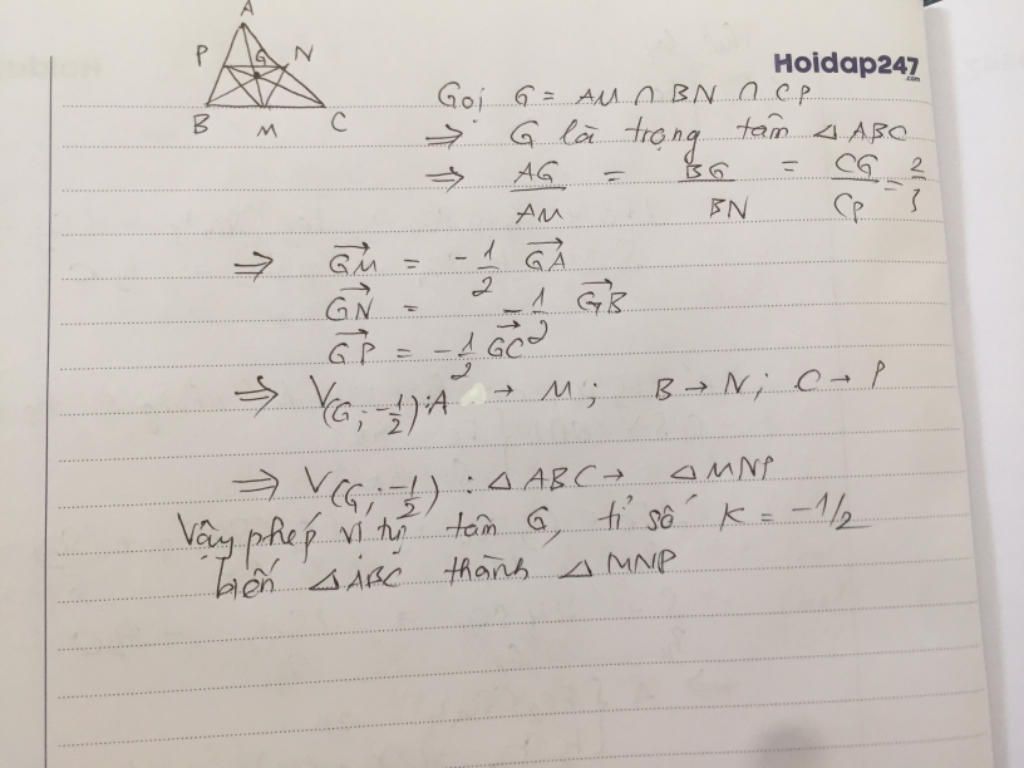 A
P
G
N
B
M
C
Hoidap247
.com
Gọi G = AM ∩ BN ∩ CP
⇒ G là trọng tâm △ABC
⇒ AG/AM = BG/BN = CG/CP = 2/3
⇒ GM→ = -1/2 GA→
GN→ = -1/2 GB→
GP→ = -1/2 GC→
⇒ V(G; -1/2) : A → M; B → N; C → P
⇒ V(G; -1/2) : △ABC → △MNP
Vậy phép vị tự tâm G, tỉ số K = -1/2
biến △ABC thành △MNP